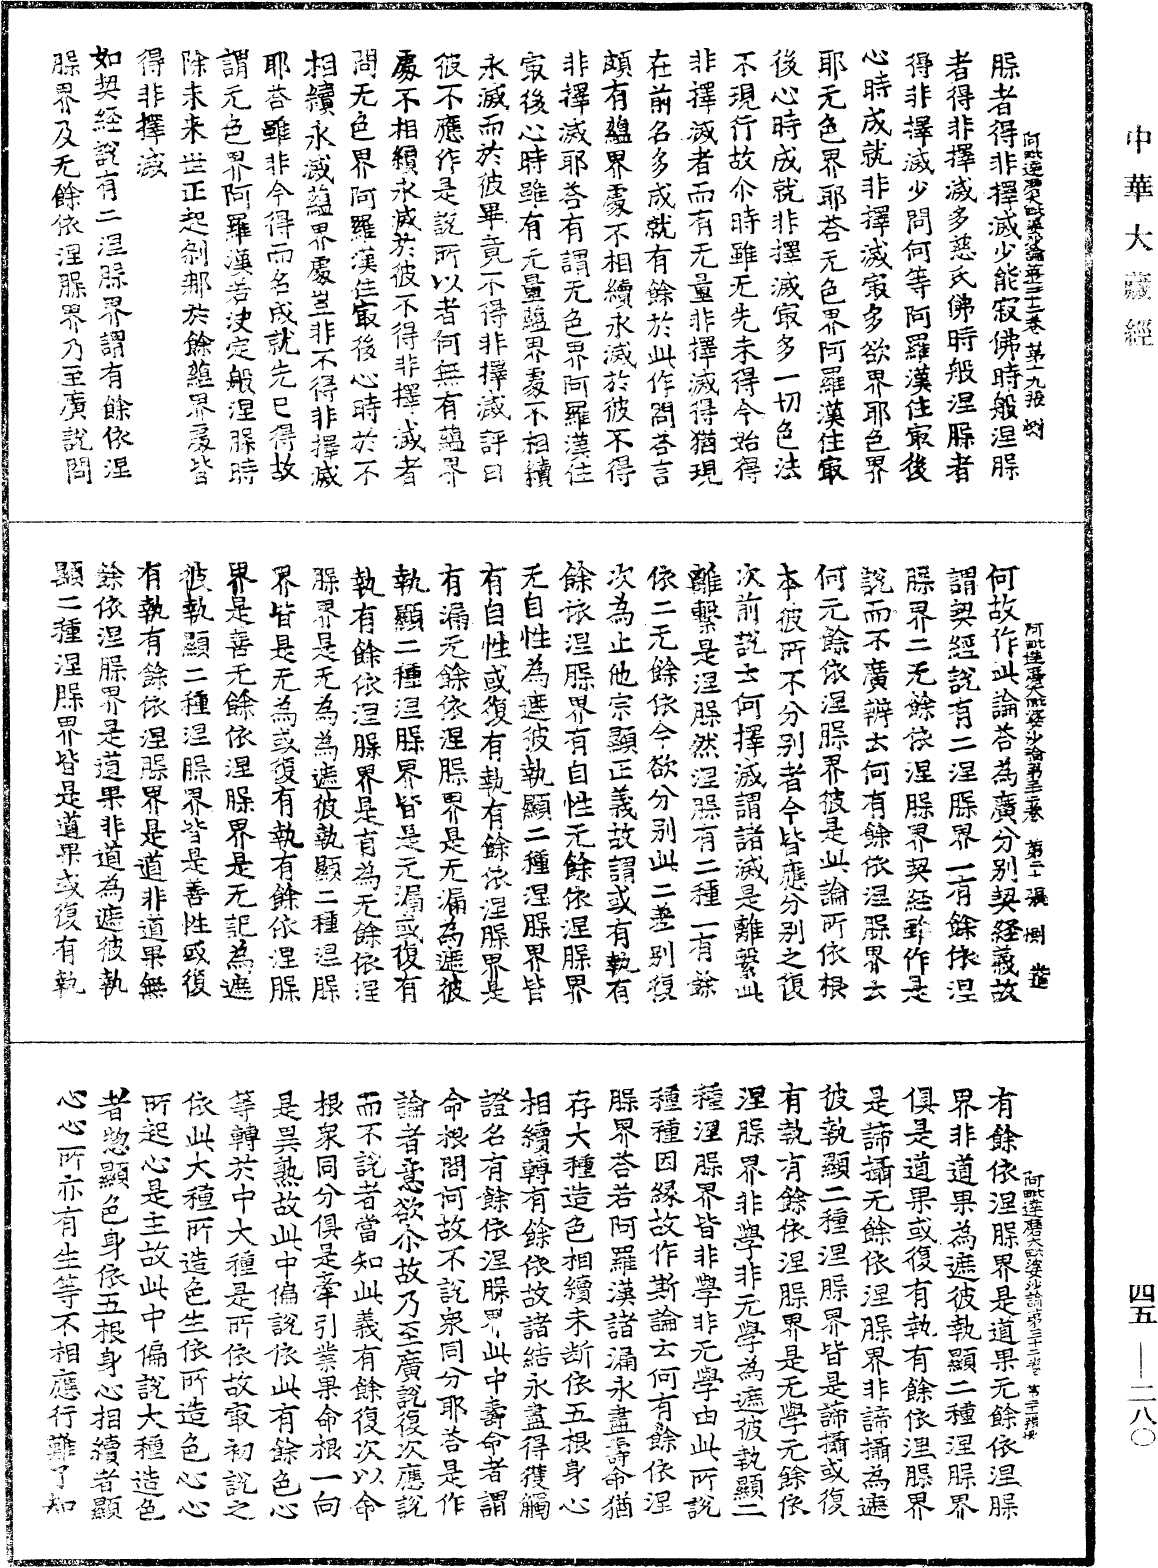 中華大藏經
四五——二八〇
阿毗達磨大毗婆沙論第三十二卷 第十九張 惻
腺者得非擇滅少能寂佛時般涅腺
者得非擇滅多慈氏佛時般涅腺者
得非擇滅少問何等阿羅漢住㝡後
心時成就非擇滅㝡多欲界耶色界
耶无色界耶荅无色界阿羅漢住㝡
後心時成就非擇滅㝡多一切色法
不現行故尒時雖无先未得今始得
非擇滅者而有无量非擇滅得猶現
在前名多成就有餘於此作問荅言
頗有藴界處不相續永滅於彼不得
非擇滅耶荅有謂无色界阿羅漢住
㝡後心時雖有无量藴界處不相續
永滅而於彼畢竟不得非擇滅評曰
彼不應作是說所以者何無有藴界
處不相續永滅於彼不得非擇滅者
問无色界阿羅漢住㝡後心時於不
相續永滅藴界處豈非不得非擇滅
耶荅雖非今得而名成就先已得故
謂无色界阿羅漢若決定般涅腺時
除未来世正起刹那於餘藴界處皆
得非擇滅
如契經說有二涅腺界謂有餘依涅
腺界及无餘依涅腺界乃至廣說問
阿毗達磨大毗婆沙論第三十二卷 第二十張 惻
何故作此論荅為廣分别契經義故
謂契經說有二涅腺界一有餘依涅
腺界二无餘依涅腺界契經雖作是
說而不廣辨云何有餘依涅腺界云
何无餘依涅腺界彼是此論所依根
本彼所不分别者今皆應分别之復
次前說云何擇滅謂諸滅是離繫此
離繫是涅腺然涅腺有二種一有餘
依二无餘依今欲分别此二差别復
次為止他宗顯正義故謂或有執有
餘依涅腺界有自性无餘依涅腺界
无自性為遮彼執顯二種涅腺界皆
有自性或復有執有餘依涅腺界是
有漏无餘依涅腺界是无漏為遮彼
執顯二種涅腺界皆是无漏或復有
執有餘依涅腺界是有為无餘依涅
腺界是无為為遮彼執顯二種涅腺
界皆是无為或復有執有餘依涅腺
界是善无餘依涅腺界是无記為遮
彼執顯二種涅腺界皆是善性或復
有執有餘依涅腺界是道非道果無
餘依涅腺界是道果非道為遮彼執
顯二種涅腺界皆是道果或復有執
阿毗達磨大毗婆沙論第三十二卷 第二十一張 惻
有餘依涅腺界是道果无餘依涅腺
界非道果為遮彼執顯二種涅腺界
俱是道果或復有執有餘依涅腺界
是諦攝无餘依涅腺界非諦攝為遮
彼執顯二種涅腺界皆是諦攝或復
有執有餘依涅腺界是无學无餘依
涅腺界非學非无學為遮彼執顯二
種涅腺界皆非學非无學由此所說
種種因縁故作斯論云何有餘依涅
腺界荅若阿羅漢諸漏永盡壽命猶
存大種造色相續未断依五根身心
相續轉有餘依故諸結永盡得獲觸
證名有餘依涅腺界此中壽命者謂
命根問何故不說衆同分耶荅是作
論者意欲尒故乃至廣說復次應說
而不說者當知此義有餘復次以命
根衆同分俱是牽引業果命根一向
是異熟故此中偏說依此有餘色心
等轉於中大種是所依故㝡初說之
依此大種所造色生依所造色心心
所起心是主故此中偏說大種造色
者惣顯色身依五根身心相續者顯
心心所亦有生等不相應行難了知